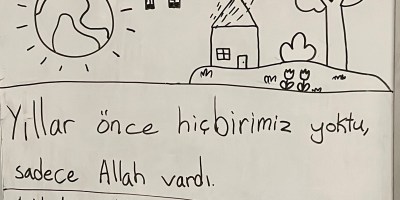 Yıllar önce hiçbirimiz yoktu,
sadece Allah vardı.